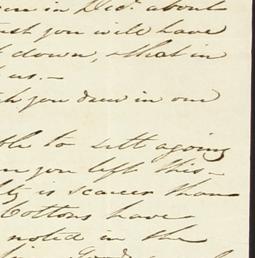 in Dec.r about
you will have
down, that in
us.—
you draw in our
to sett agoing
you left this—
is scarcer than
Cottons have
noted in the